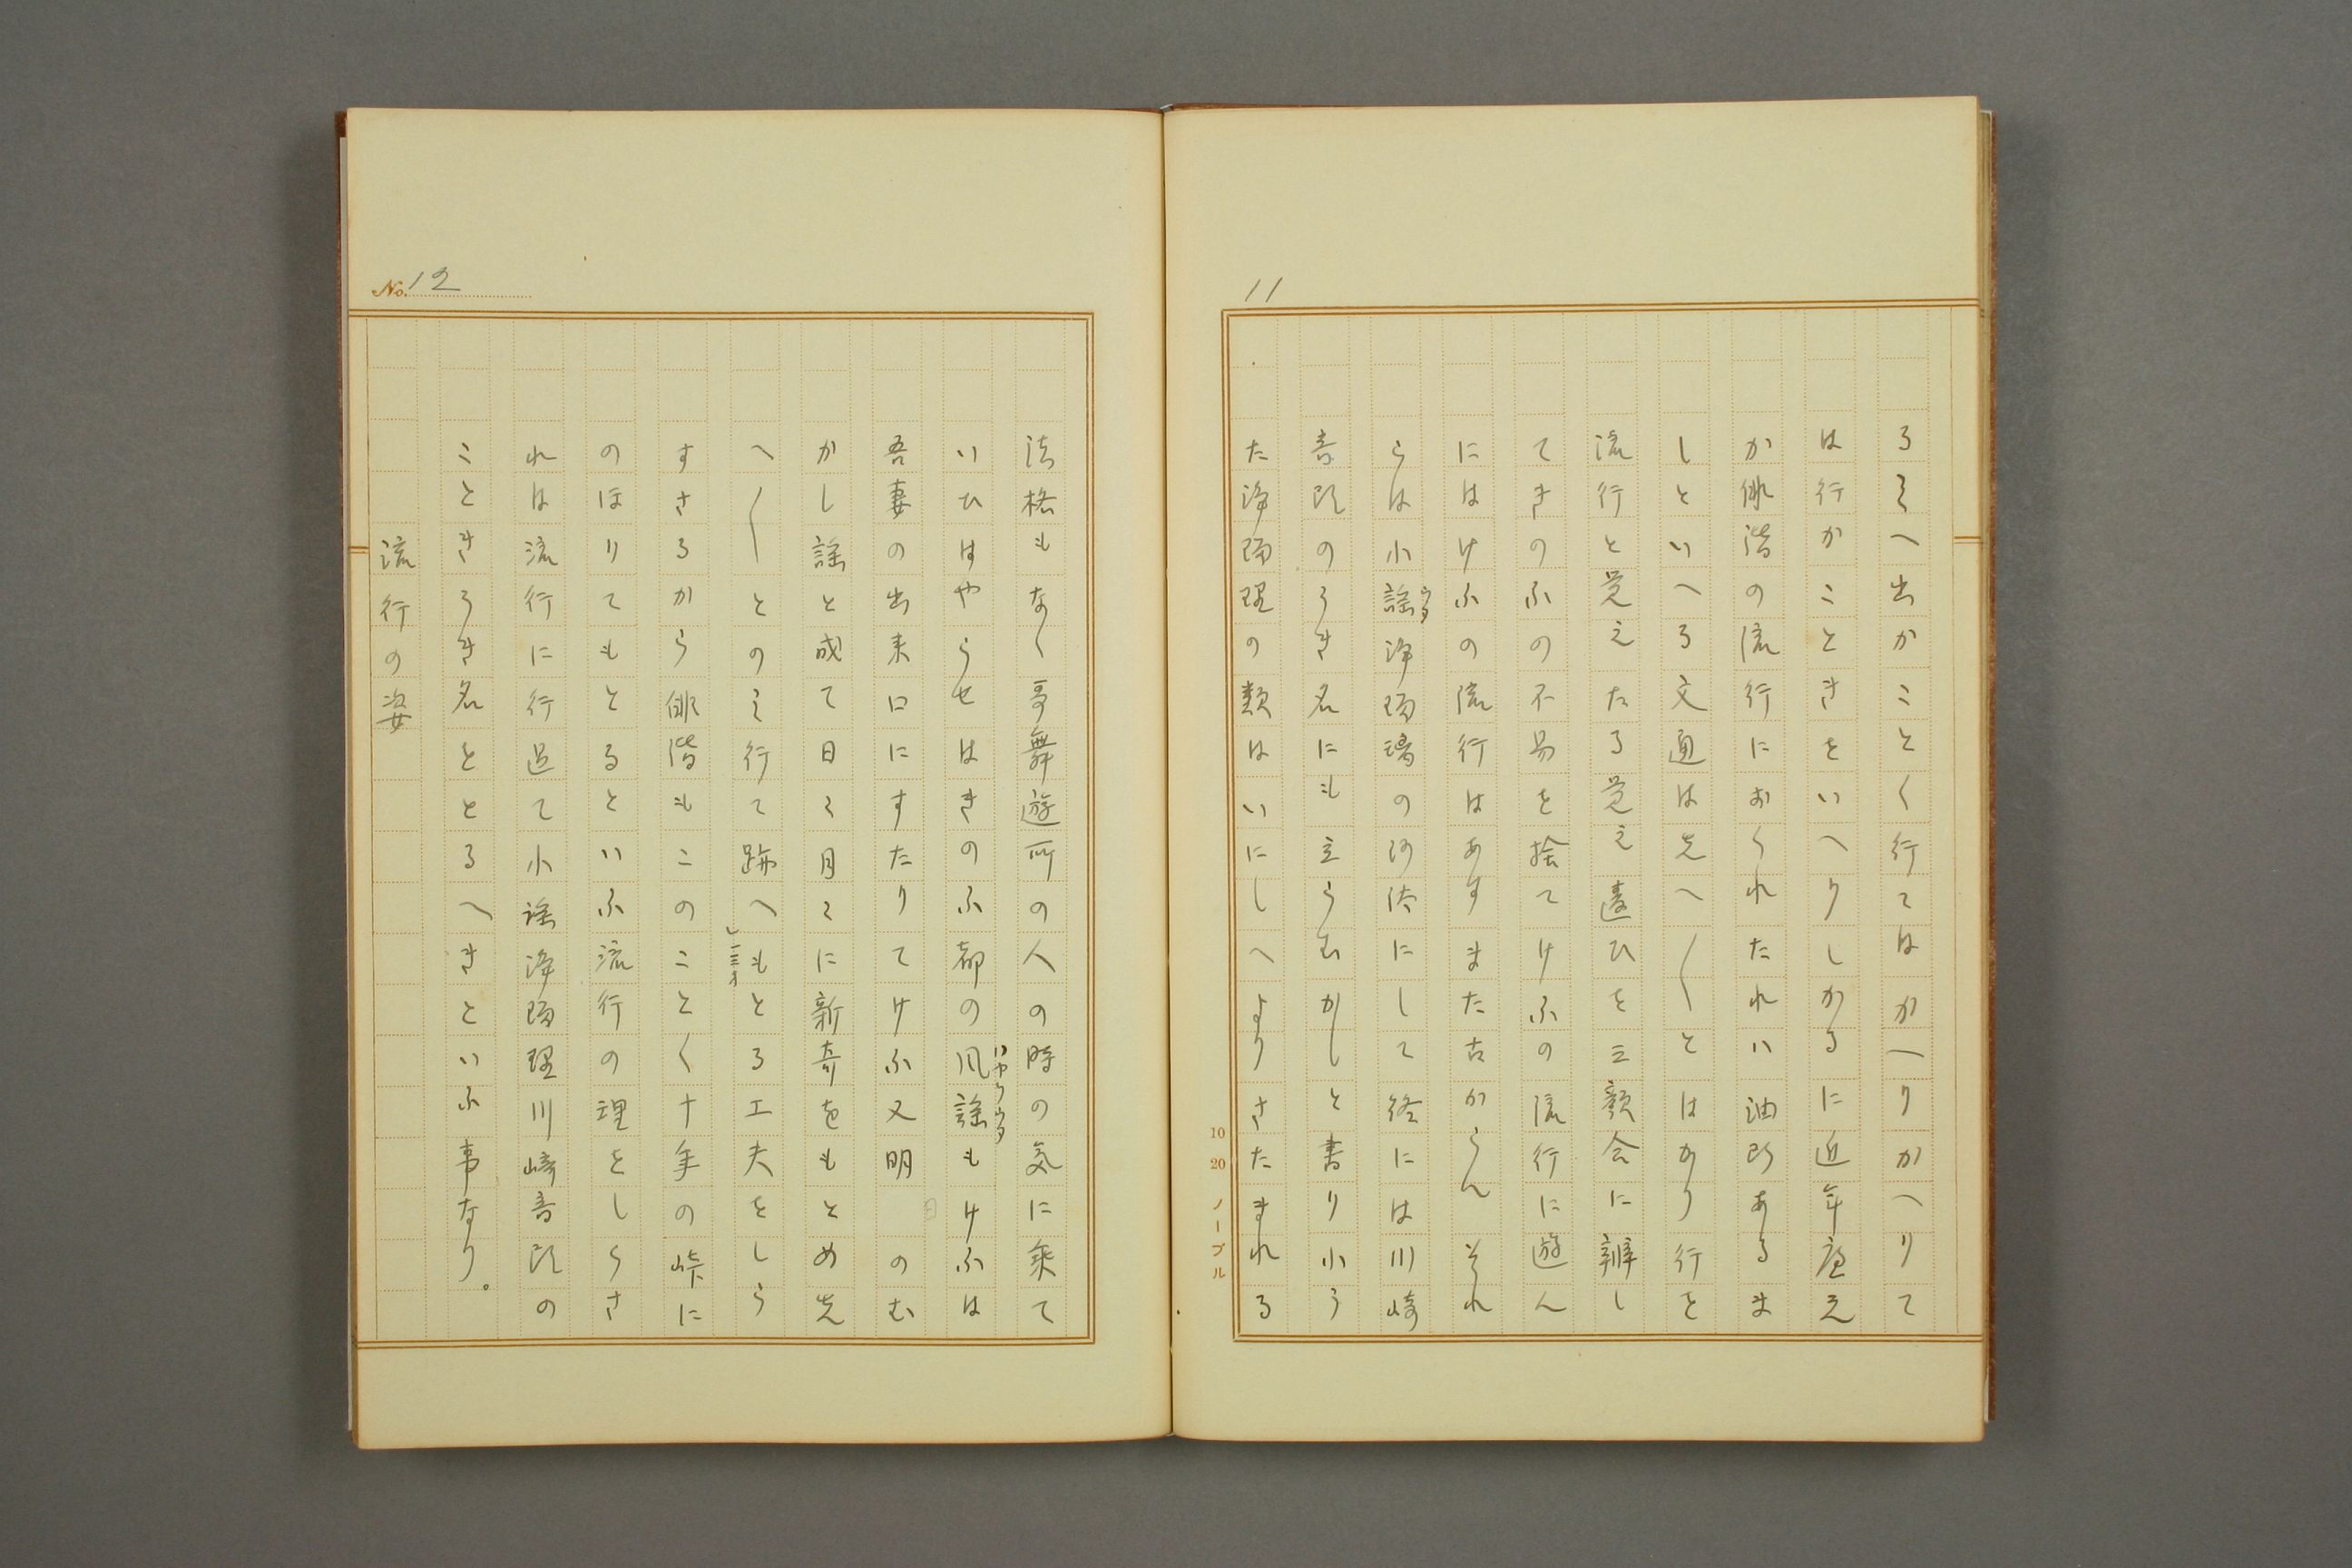 11
るミへ出かことく行てはかへりかへりて
は行かこときをいへりしかるに近年唐え
か俳諧の流行におくれたれハ油断あるま
しといへる文通は先へ〱とはかり行を
流行と覚えたる覚え違ひを三顔会に辨し
てきのふの不易を捨てけふの流行に遊ん
にはけふの流行はあすまた古からんそれ
らは小謡浄瑠璃の沙汰にして終には川崎
音頭のうき名にも立らむかしと書り小う
た浄瑠理の類はいにしへよりさたまれる
ウタ
10 20 ノーブル
No. 12
法格もなく哥舞遊所の人の時の気に乗て
いひはやらせはきのふ都の風謡もけふは
ハヤリウタ
吾妻の出来口にすたりてけふ又明のむ
日
かし謡と成て日々月々に新奇をもとめ先
へ〱とのミ行て跡へもとる工夫をしら
すさるから俳諧もこのことく十年の峠に
のほりてもとるといふ流行の理をしらさ
れは流行に行過て小謡浄瑠理川崎音頭の
こときうき名をとるへきといふ事なり。
流行の姿